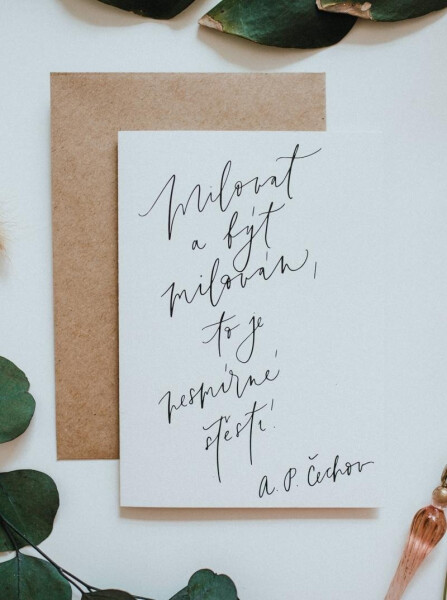 Milovat
a být
milován,
to je
nesmírné
štěstí!
A. P. Čechov